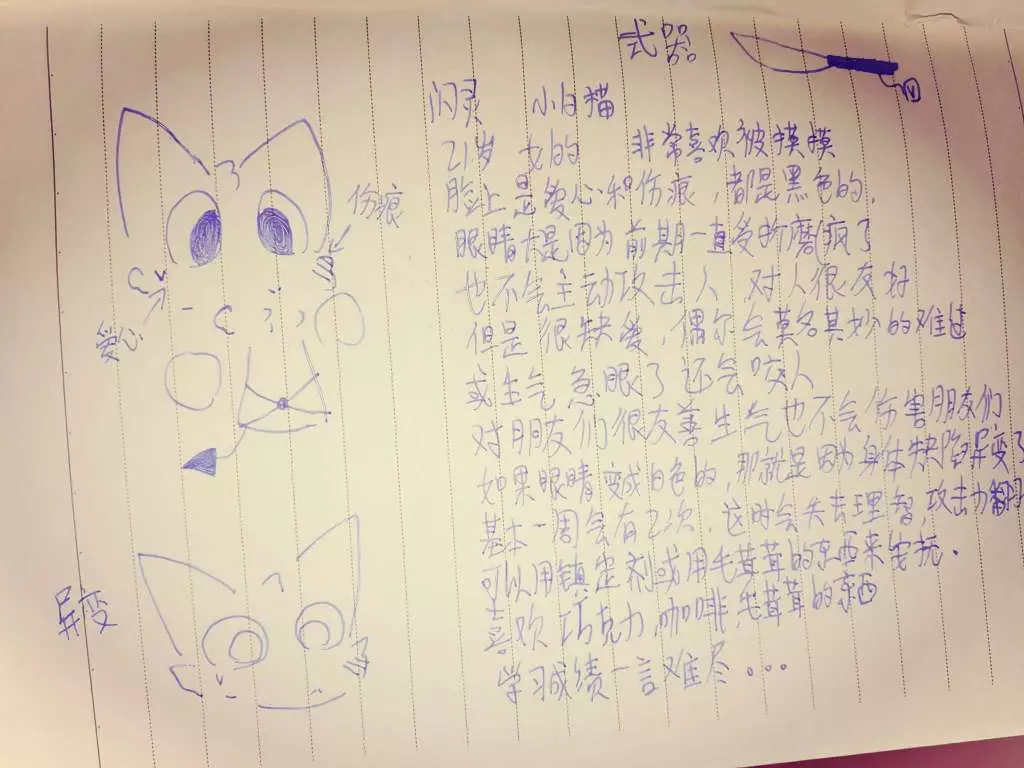 武器
闪灵 小白猫
21岁 女的 非常喜欢被摸摸
脸上是爱心和伤痕，都是黑色的，
眼睛大是因为前期一直受折磨疯了
也不会主动攻击人 对人很友好
但是很缺爱，偶尔会莫名其妙的难过
或生气 急眼了还会咬人
对朋友们很友善生气也不会伤害朋友们
如果眼睛变成白色的，那就是因为身体缺陷异变了
基本一周会有2次，这时会失去理智，攻击力翻
可以用镇定剂或用毛茸茸的东西来安抚．
喜欢 巧克力 咖啡 毛茸茸的东西
学习成绩一言难尽...
伤痕
爱心
异变